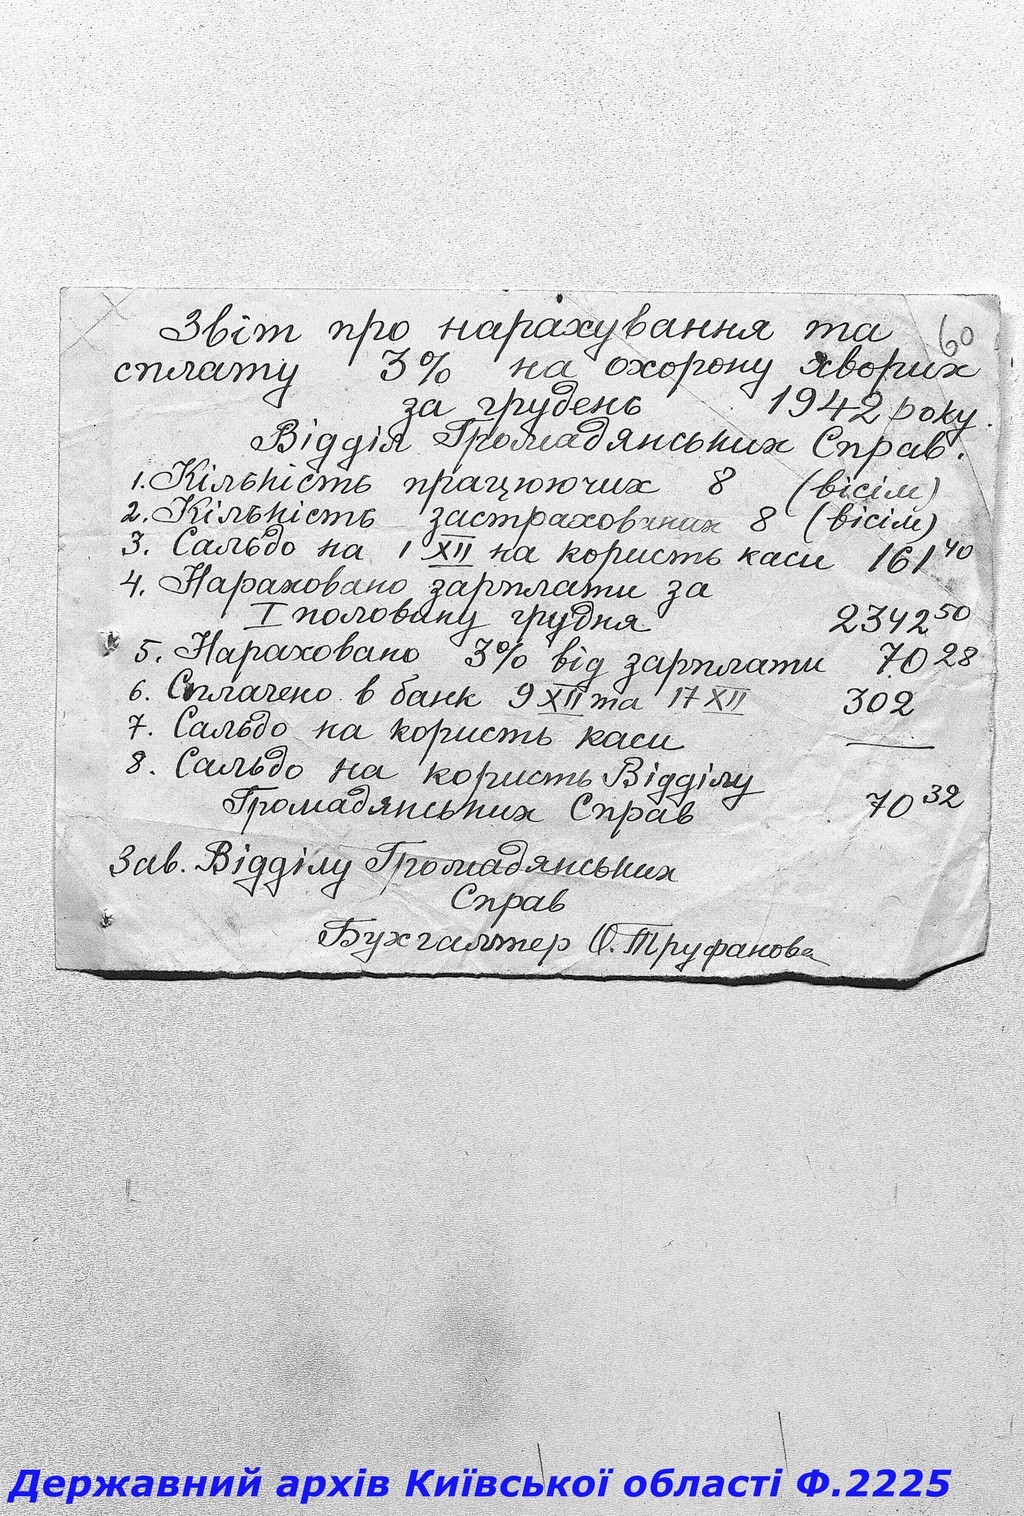 Звіт про нарахування та
60
сплату 3% на охорону хворих
за грудень 1942 року.
Відділ Громадянських Справ.
1. Кількість працюючих 8 (вісім)
2. Кількість застрахованих 8 (вісім)
3. Сальдо на 1 XII на користь каси 161 40
4. Нараховано зарплати за
I половину грудня 2342 50
5. Нараховано 3% від зарплати 70 28
6. Сплачено в банк 9 XII та 17 XII 302
7. Сальдо на користь каси —
8. Сальдо на користь Відділу
Громадянських Справ 70 32
Зав. Відділу Громадянських
Справ
Бухгалтер О. Труфанова
Державний архів Київської області Ф.2225